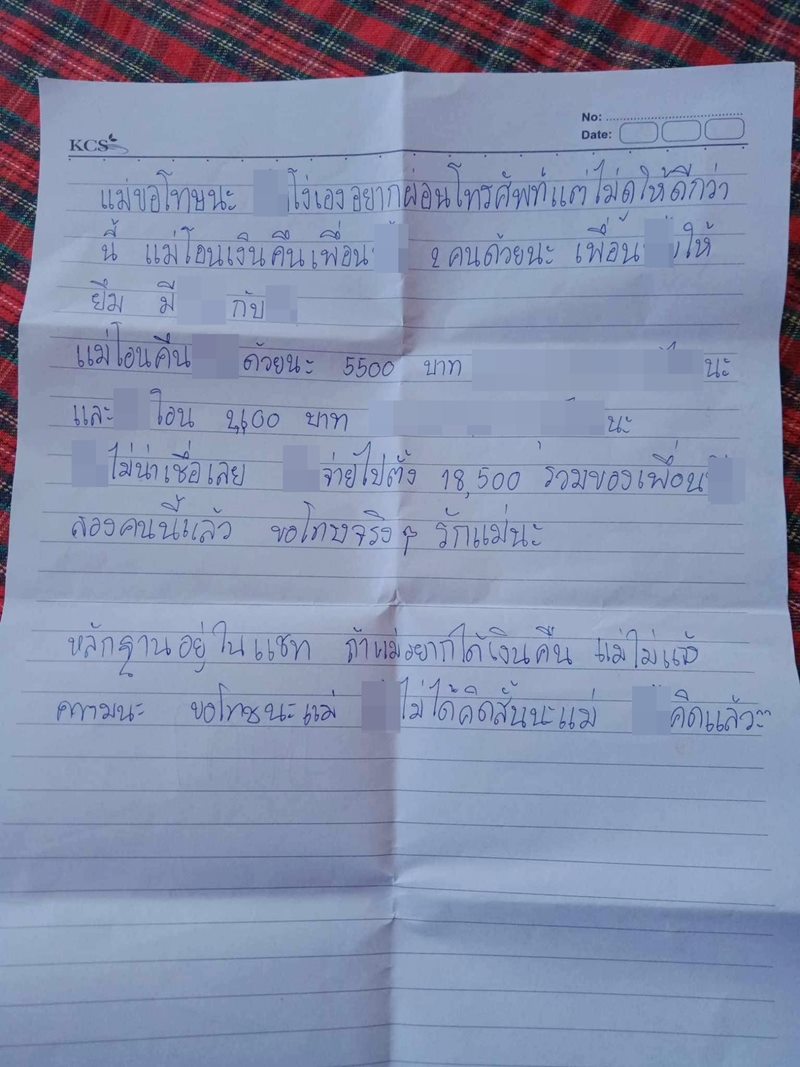 KCS
No:
Date:
แม่ขอโทษนะ โง่เองอยากผ่อนโทรศัพท์แต่ไม่ดูให้ดีกว่า
นี้ แม่โอนเงินคืนเพื่อน 2 คนด้วยนะ เพื่อน ให้
ยืม มี กับ
แม่โอนคืน ด้วยนะ 5500 บาท นะ
และ โอน บาท นะ
ไม่น่าเชื่อเลย จ่ายไปตั้ง 18,500 รวมของเพื่อน
สองคนนี้แล้ว ขอโทษจริงๆ รักแม่นะ
หลักฐานอยู่ในแชท ถ้าแม่อยากได้เงินคืน แม่ไปแจ้ง
ความนะ ขอโทษนะแม่ ไม่ได้คิดสั้นนะแม่ คิดแล้ว